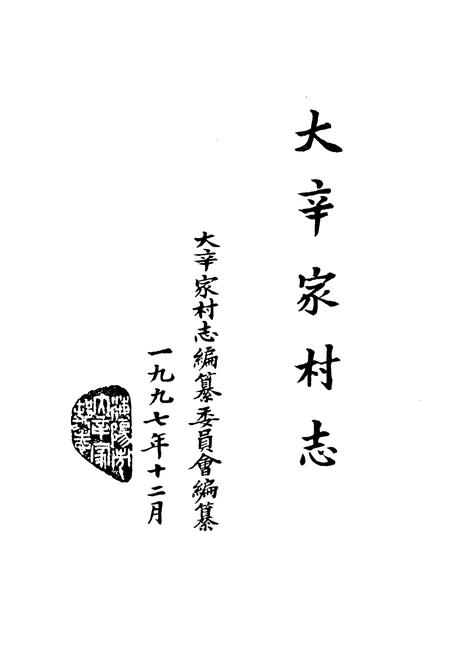 大辛家村志
大辛家村志編纂委員會編纂
一九九七年十二月
海陽市
大辛家